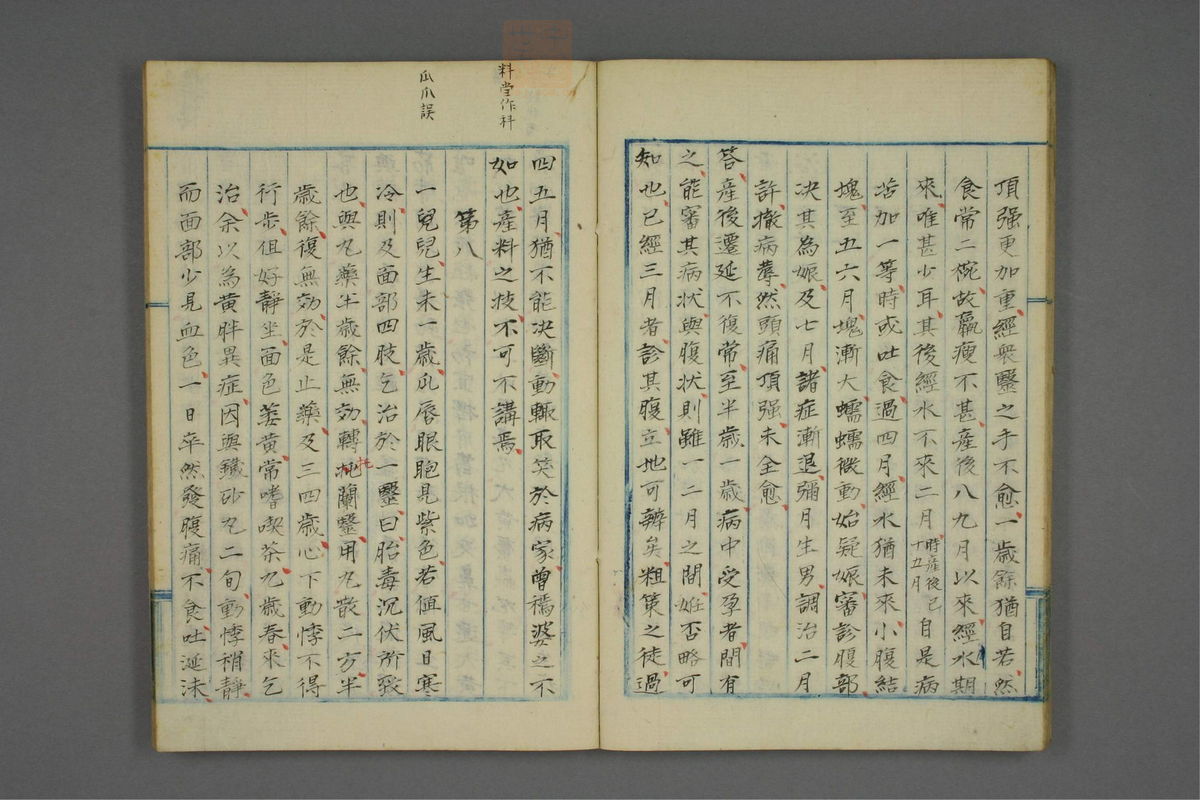 頂强更加重經衆毉之手不愈一歲餘猶自若然
食常二椀故羸瘦不甚產後八九月以來經水期
來唯甚少耳其後經水不來二月時產後已十五月自是病
苦加一等時或吐食過四月經水猶未來小腹結
塊至五六月塊漸大蠕蠕機動始疑娠審診腹部
决其為娠及七月諸症漸退彌月生男調治二月
許撤病蓐然頭痛頂强未全愈
答產後遷延不復常至半歲一歲病中受孕者間有
之能審其病狀與腹狀則雖一二月之間妊否略可
知也已經三月者診其腹立地可辨矣粗策之徒過
四五月猶不能决斷動輒取笑於病家曾穩婆之不
如也產料之技不可不講焉
料當作科
第八
一兒兒生未一歲爪唇眼胞見紫色若値風日寒
瓜爪誤
冷則及面部四肢乞治於一毉曰胎毒沉伏所致
也與丸藥半歲餘無効轉托蘭毉用丸散二方半
歲餘復無効於是止藥及三四歲心下動悸不得
行步但好靜坐面色萎黃常嗜喫茶九歲春來乞
治余以為黃胖異症因與鐵砂丸二旬動悸稍靜
而面部少見血色一日卒然發腹痛不食吐涎沫